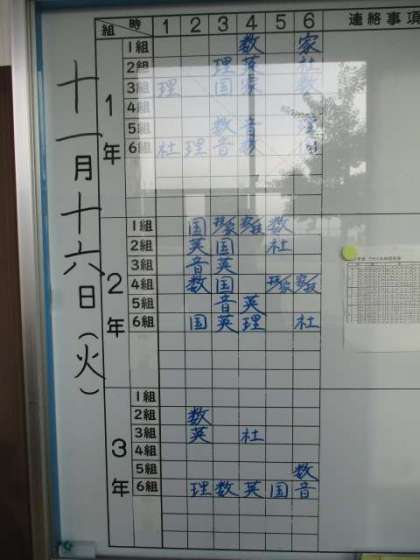 十一月十六日(火)
組 時 1 2 3 4 5 6 連絡事項
1年
1組 数 家
2組 理 英 社
3組 理 国 家 数
4組
5組 数 音
6組 社 理 音 数
2年
1組 国 数
2組 英 国 社
3組 音 英
4組 数 国
5組 音 英
6組 国 英 理 社
3年
1組
2組 数
3組 英 社
4組
5組 数
6組 理 数 英 国 音